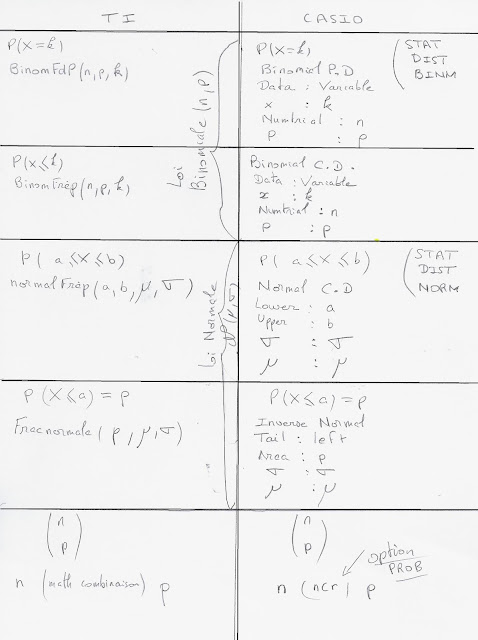 TI
CASIO
P(X=k)
BinomFdP(n,p,k)
P(X=k)
Binomial P.D
Data : Variable
x : k
Numtrial : n
P : p
STAT
DIST
BINM
Loi Binomiale (n,p)
P(X⩽k)
BinomFrép(n,p,k)
Binomial C.D.
Data : Variable
x : k
Numtrial : n
P : p
P( a⩽X⩽b)
normalFrép(a,b,μ,σ)
P( a⩽X⩽b)
Normal C.D
Lower : a
Upper : b
σ : σ
μ : μ
STAT
DIST
NORM
Loi Normale
(μ,σ)
P(X⩽a) = p
Fracnormale( p, μ, σ)
P(X⩽a) = p
Inverse Normal
Tail : left
Area : p
σ : σ
μ : μ
(n p)
n (math combinaison) p
(n p)
n (nCr) p
option
PROB